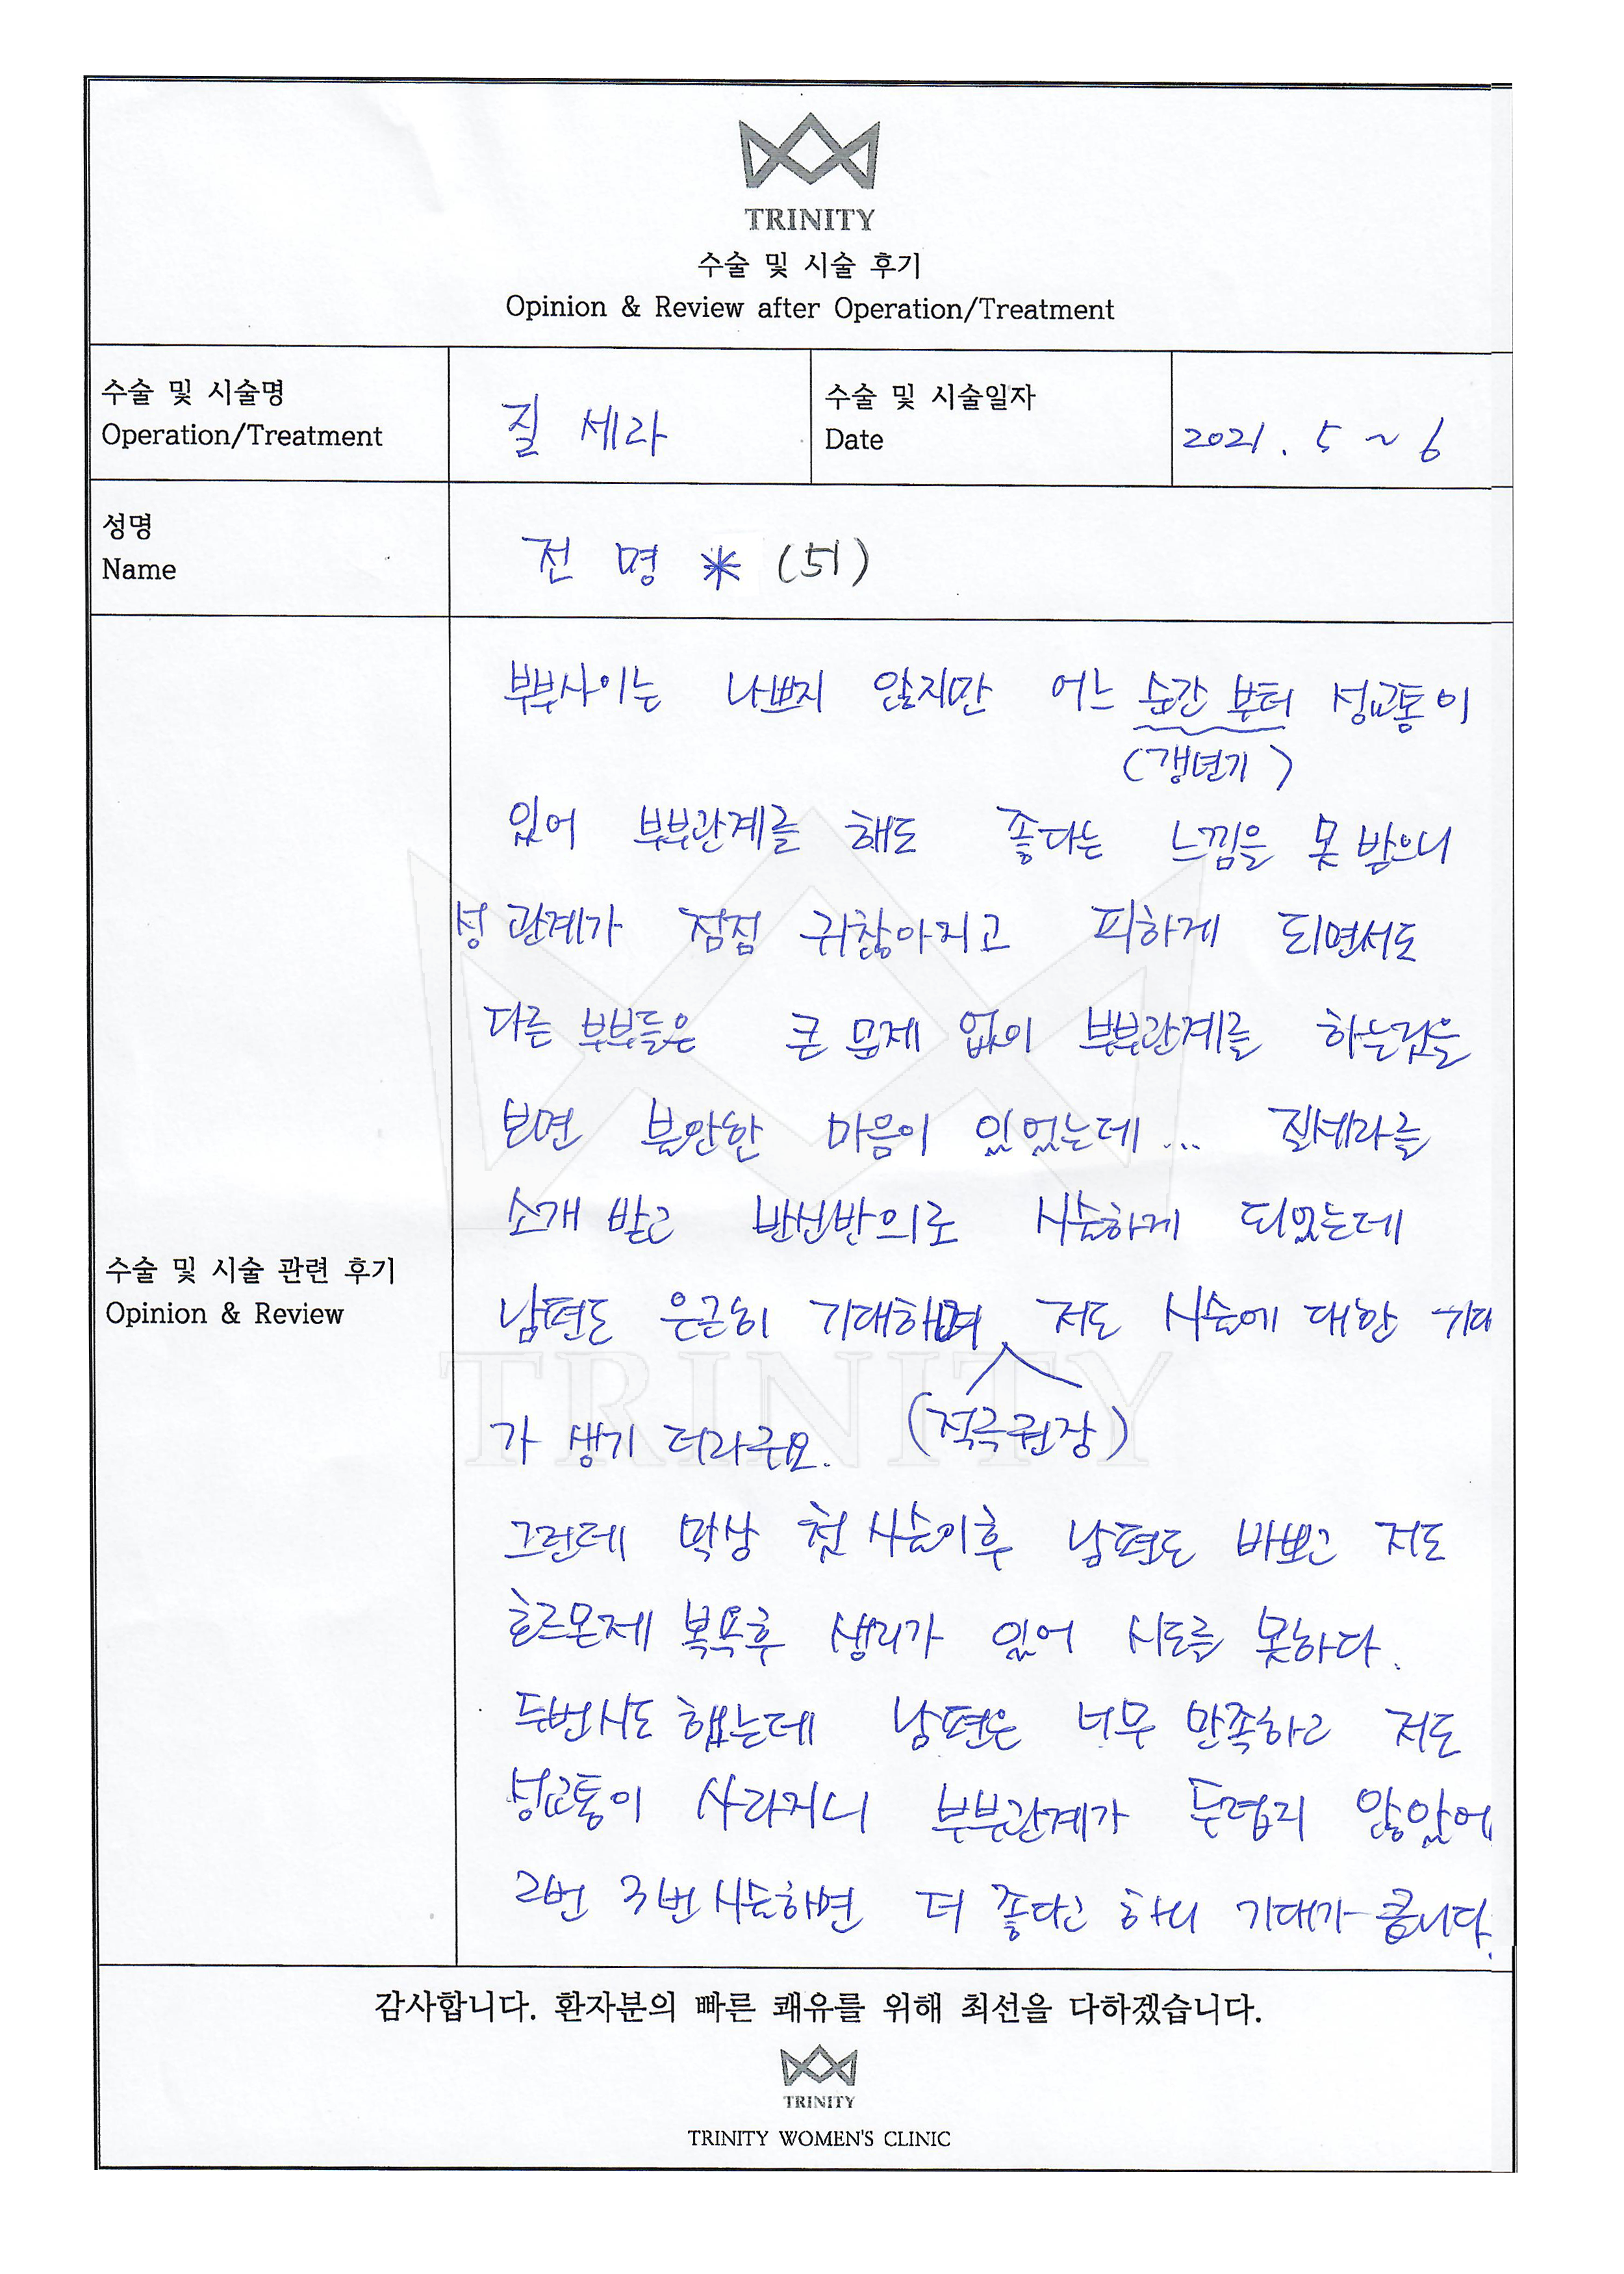 TRINITY
수술 및 시술 후기
Opinion & Review after Operation/Treatment
수술 및 시술명
Operation/Treatment
질 세라
수술 및 시술일자
Date
2021. 5 ~ 6
성명
Name
전 명 * (51)
수술 및 시술 관련 후기
Opinion & Review
부부사이는 나쁘지 않지만 어느 순간 부터 성교통이
(갱년기)
있어 부부관계를 해도 좋다는 느낌을 못 받으니
성관계가 점점 귀찮아지고 피하게 되면서도
다른 부부들은 큰 문제 없이 부부관계를 하는것을
보면 불안한 마음이 있었는데... 질세라를
소개 받고 반신반의로 시술하게 되었는데
남편도 은근히 기대하며 저도 시술에 대한 기대
(적극권장)
가 생기 더라구요.
그런데 막상 첫 시술이후 남편도 바쁘고 저도
호르몬제 복용후 생리가 있어 시도를 못하다.
두번시도 했는데 남편은 너무 만족하고 저도
성교통이 사라지니 부부관계가 두렵지 않았어
2번 3번 시술하면 더 좋다고 하니 기대가 큽니다.
TRINITY
감사합니다. 환자분의 빠른 쾌유를 위해 최선을 다하겠습니다.
TRINITY
TRINITY WOMEN'S CLINIC